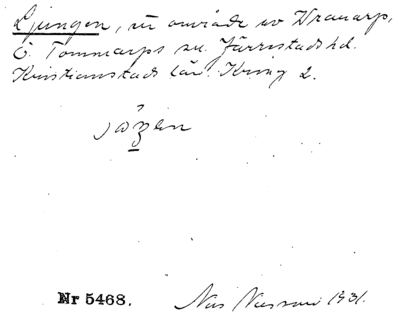 Ljungen, in område av Vranarp,
Ö. Tommarps sn. Järrestads hd.
Kristianstads län. Kring 2.
Nr 5468.
Nils 1931.